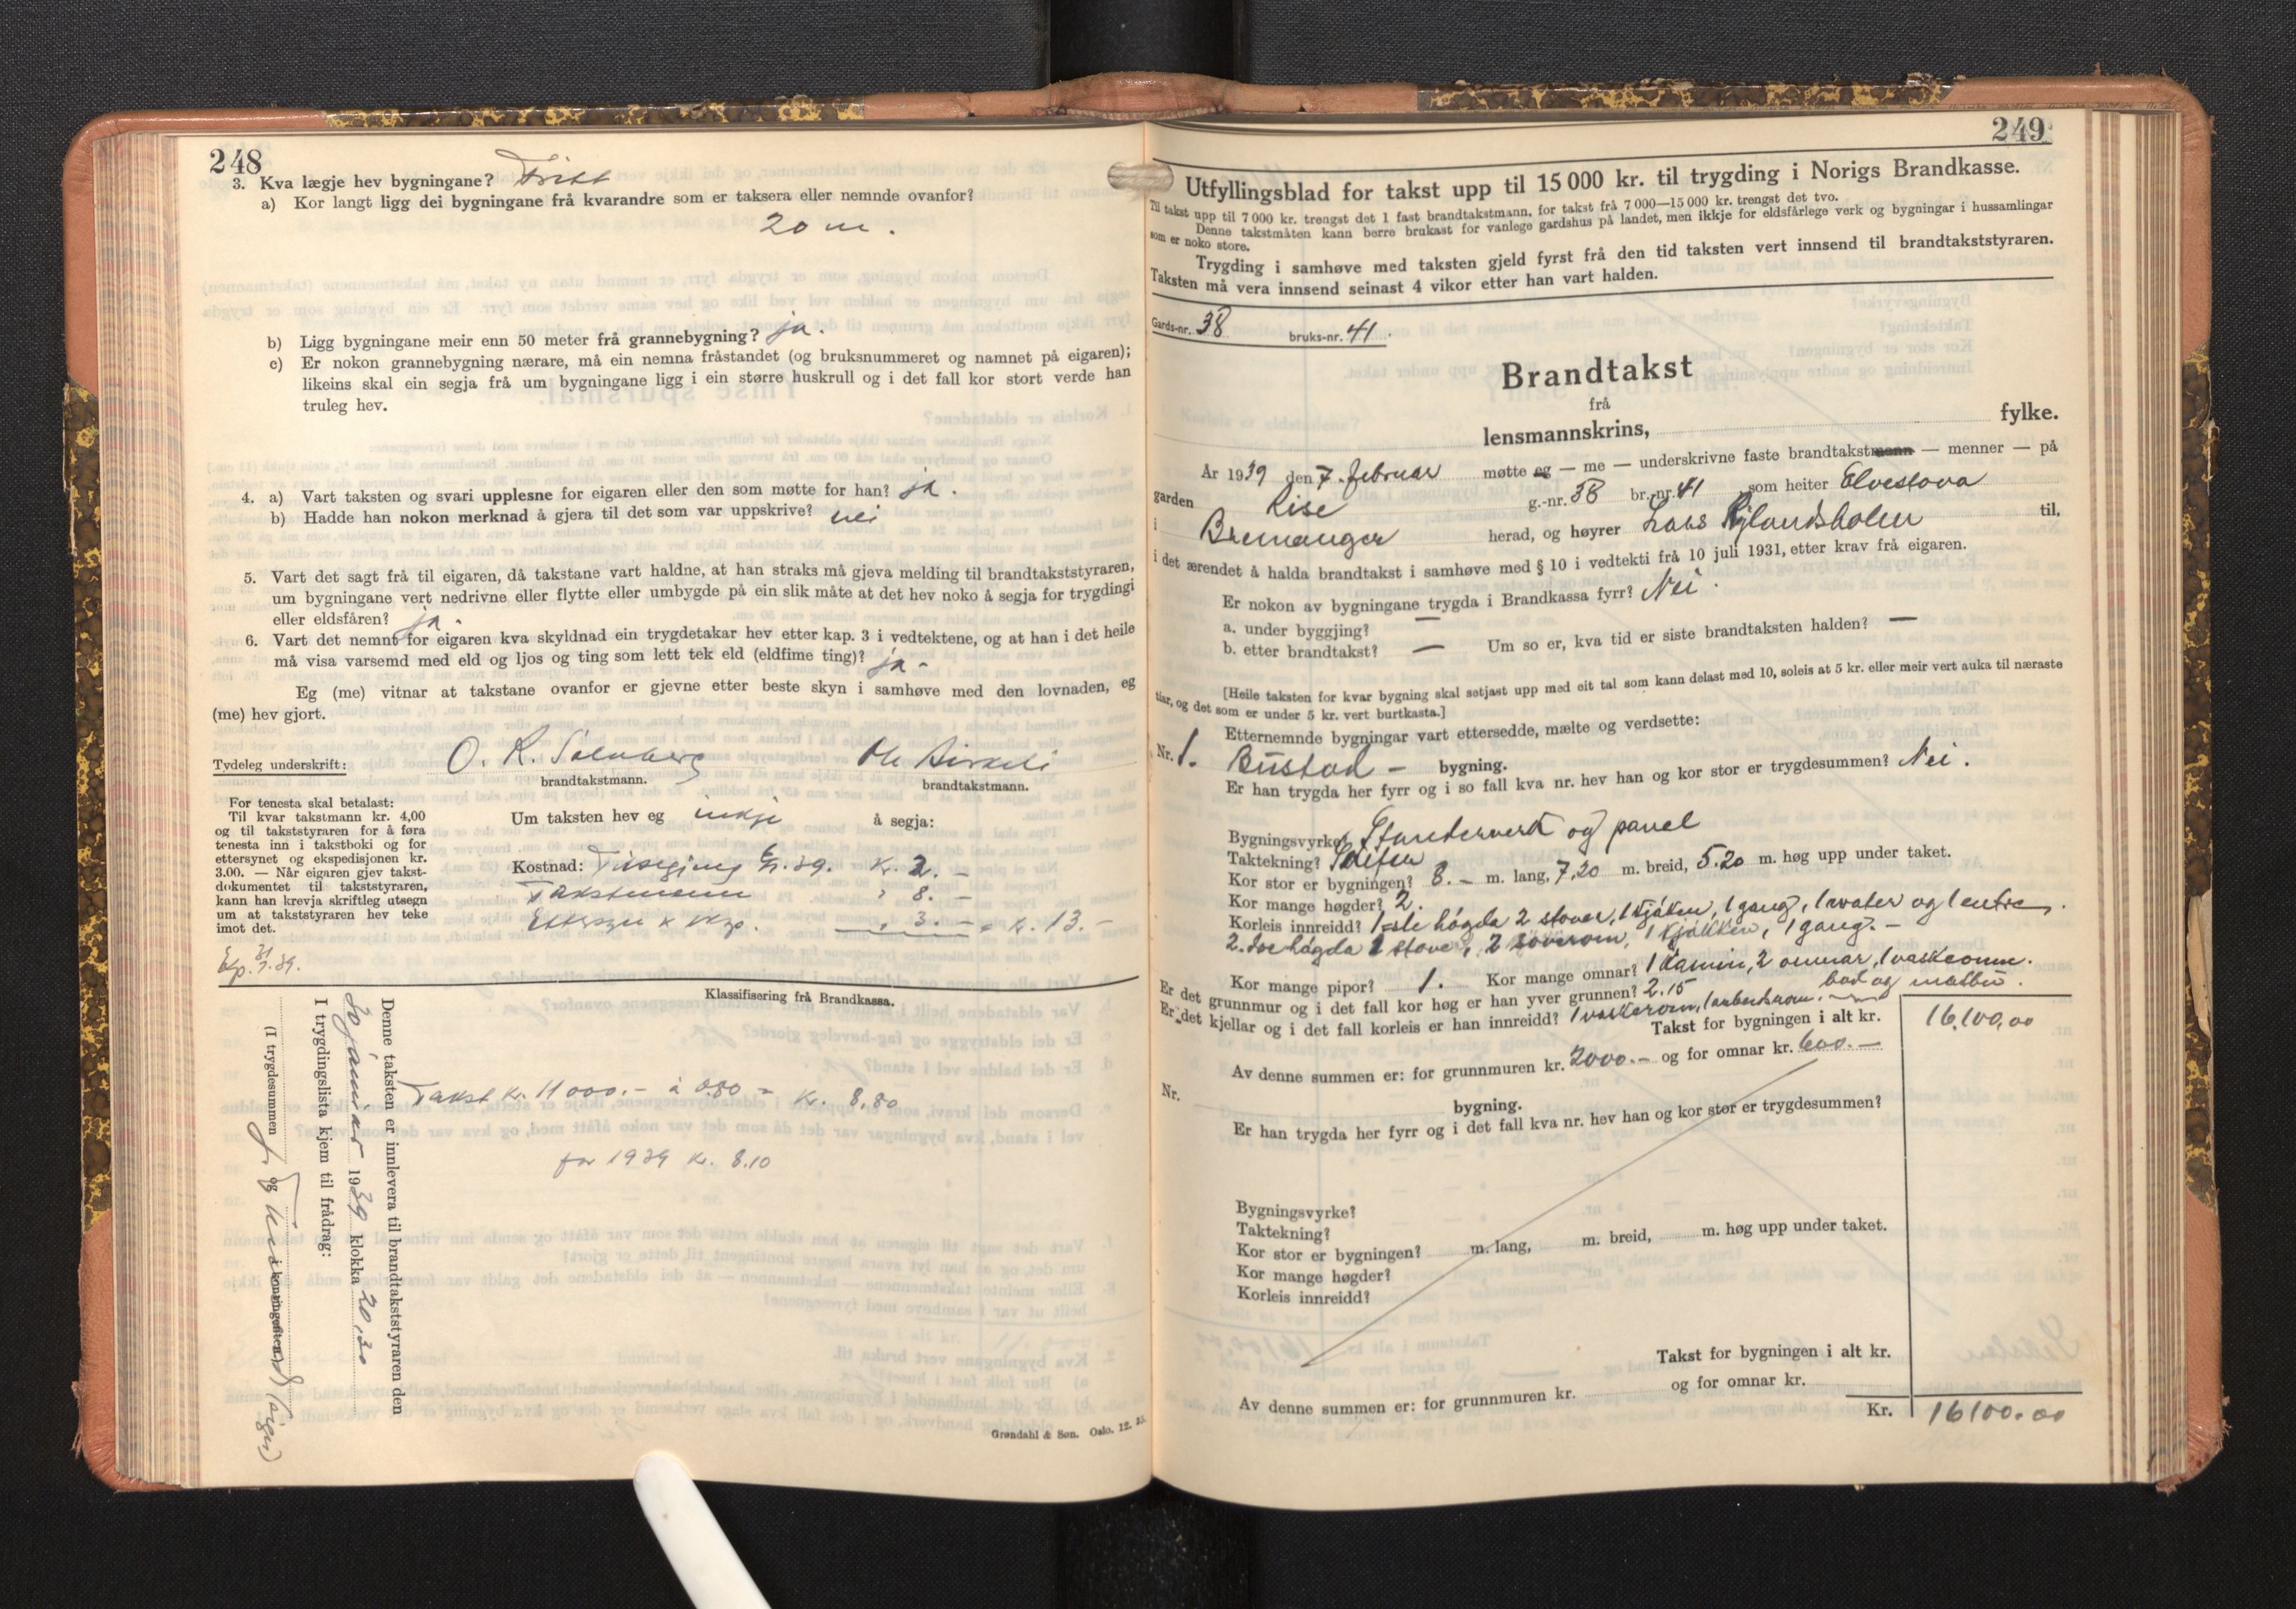 248
3. Kva lægje hev bygningane? Fritt
a) Kor langt ligg dei bygningane frå kvarandre som er taksera eller nemnde ovanfor?
20 m.
b) Ligg bygningane meir enn 50 meter frå grannebygning? ja.
c) Er nokon grannebygning nærare, må ein nemna fråstandet (og bruksnummeret og namnet på eigaren);
likeins skal ein segja frå um bygningane ligg i ein større huskrull og i det fall kor stort verde han
truleg hev.
4. a) Vart taksten og svari upplesne for eigaren eller den som møtte for han? ja.
b) Hadde han nokon merknad å gjera til det som var uppskrive? nei
5. Vart det sagt frå til eigaren, då takstane vart haldne, at han straks må gjeva melding til brandtakststyraren,
um bygningane vert nedrivne eller flytte eller umbygde på ein slik måte at det hev noko å segja for trygdingi
eller eldsfåren? ja.
6. Vart det nemnt for eigaren kva skyldnad ein trygdetakar hev etter kap. 3 i vedtektene, og at han i det heile
må visa varsemd med eld og ljos og ting som lett tek eld (eldfime ting)? ja.
Eg (me) vitnar at takstane ovanfor er gjevne etter beste skyn i samhøve med den lovnaden, eg
(me) hev gjort.
Tydeleg underskrift: O. R. Ole
brandtakstmann. brandtakstmann.
For tenesta skal betalast:
Til kvar takstmann kr. 4,00
og til takststyraren for å føra
tenesta inn i takstboki og for
ettersynet og ekspedisjonen kr.
3.00. — Når eigaren gjev takst-
dokumentet til takststyraren,
kann han krevja skriftleg utsegn
um at takststyraren hev teke
imot det.
Um taksten hev eg inkje å segja:
Kostnad: 39. Kr. 2.-
Takstmenn " 8.-
Ettersyn x eksp. " 3.- = Kr. 13.-
Exp. 31/1.39.
Klassifisering frå Brandkassa.
Denne taksten er innlevera til brandtakststyraren den
30 januar 1939 klokka 20,30
I trygdingslista kjem til frådrag:
(I trygdesummen og i kontingenten)
Takst kr. 11 000.- à 0.80 = kr. 8,80
for 1939 kr. 8.10
Grøndahl & Søn. Oslo. 12. 35.
249
Utfyllingsblad for takst upp til 15 000 kr. til trygding i Norigs Brandkasse.
Til takst upp til 7 000 kr. trengst det 1 fast brandtakstmann, for takst frå 7 000—15 000 kr. trengst det tvo.
Denne takstmåten kann berre brukast for vanlege gardshus på landet, men ikkje for eldsfårlege verk og bygningar i hussamlingar
som er noko store.
Trygding i samhøve med taksten gjeld fyrst frå den tid taksten vert innsend til brandtakststyraren.
Taksten må vera innsend seinast 4 vikor etter han vart halden.
Gards-nr. 38 bruks-nr. 41.
Brandtakst
frå
lensmannskrins, fylke.
År 1939 den 7. februar møtte eg — me — underskrivne faste brandtakstmann — menner — på
garden Rise g.-nr. 38 br.-nr. 41 som heiter Elvestova
i Bremanger herad, og høyrer Lars Rylandsholm til,
i det ærendet å halda brandtakst i samhøve med § 10 i vedtekti frå 10 juli 1931, etter krav frå eigaren.
Er nokon av bygningane trygda i Brandkassa fyrr? Nei.
a. under byggjing? —
b. etter brandtakst? — Um so er, kva tid er siste brandtaksten halden? —
[Heile taksten for kvar bygning skal setjast upp med eit tal som kann delast med 10, soleis at 5 kr. eller meir vert auka til næraste
tiar, og det som er under 5 kr. vert burtkasta.]
Etternemnde bygningar vart ettersedde, mælte og verdsette:
Nr. 1. Bustad- bygning.
Er han trygda her fyrr og i so fall kva nr. hev han og kor stor er trygdesummen? Nei.
Bygningsvyrke? Standerverk og panel
Taktekning? Skifer
Kor stor er bygningen? 8.- m. lang, 7,20 m. breid, 5.20 m. høg upp under taket.
Kor mange høgder? 2.
Korleis innreidd? 1-ste høgda 2 stover, 1 kjøken, 1 gang, 1 water og 1 entre.
2.dre høgda 1 stove, 2 soverom, 1 kjøkken, 1 gang.-
Kor mange pipor? 1. Kor mange omnar? 1 kamin, 2 omnar, 1 vaskeomn.
Er det grunnmur og i det fall kor høg er han yver grunnen? 2.15 bad og matbu.
Er det kjellar og i det fall korleis er han innreidd? 1 vaskerom, 1 arbeidsrom.
Takst for bygningen i alt kr. 16,100,00
Av denne summen er: for grunnmuren kr. 2000.- og for omnar kr. 600.-
Nr. bygning.
Er han trygda her fyrr og i det fall kva nr. hev han og kor stor er trygdesummen?
Bygningsvyrke?
Taktekning?
Kor stor er bygningen? m. lang, m. breid, m. høg upp under taket.
Kor mange høgder?
Korleis innreidd?
Takst for bygningen i alt kr.
Av denne summen er: for grunnmuren kr. og for omnar kr.
Kr. 16100.00